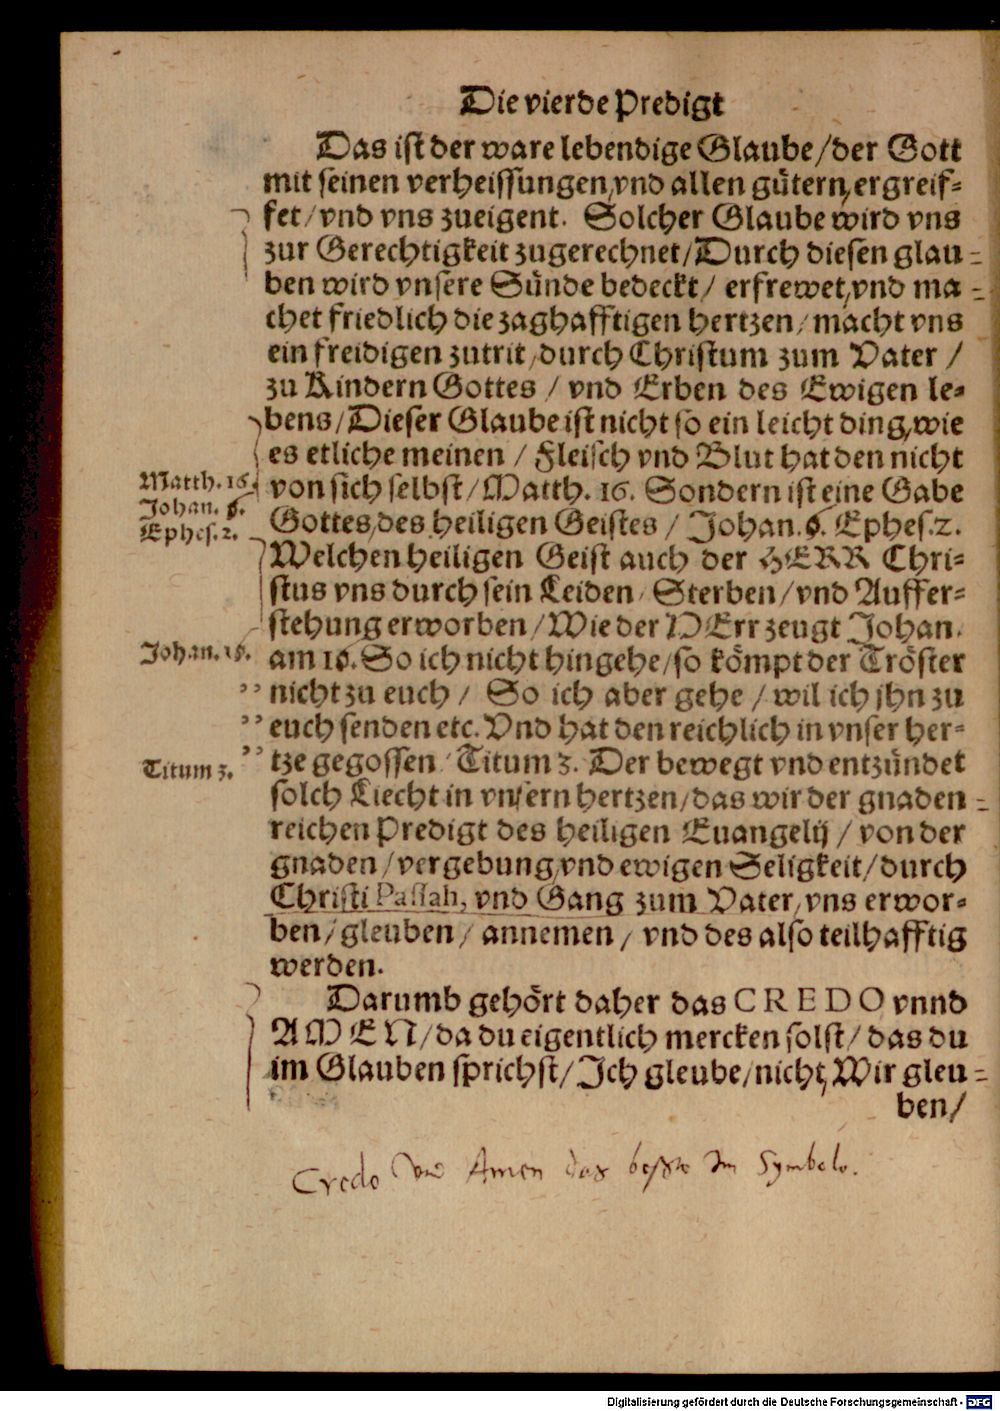 Die vierde Predigt
Das ist der ware lebendige Glaube/der Gott
mit seinen verheissungen/vnd allen gütern/ergreif-
fet/vnd vns zueigent. Solcher Glaube wird vns
zur Gerechtigkeit zugerechnet/Durch diesen glau-
ben wird vnsere Sünde bedeckt/ erfrewet/vnd ma-
chet friedlich die zaghafftigen hertzen/macht vns
ein freidigen zutrit/durch Christum zum Vater /
zu Kindern Gottes / vnd Erben des Ewigen le-
bens/Dieser Glaube ist nicht so ein leicht ding/wie
es etliche meinen / Fleisch vnd Blut hat den nicht
Matth. 16.
von sich selbst/Matth. 16. Sondern ist eine Gabe
Johan. 6.
Gottes/des heiligen Geistes / Johan. 6. Ephes. 2.
Ephes. 2.
Welchen heiligen Geist auch der HERR Chri-
stus vns durch sein Leiden/ Sterben/vnd Auffer-
stehung erworben/Wie der HErr zeugt Johan.
Johan. 16.
am 16. So ich nicht hingehe/so kömpt der Tröster
nicht zu euch / So ich aber gehe / wil ich jhn zu
euch senden etc. Vnd hat den reichlich in vnser her-
tze gegossen/Titum 3. Der bewegt vnd entzündet
Titum 3.
solch Liecht in vnsern hertzen/das wir der gnaden-
reichen Predigt des heiligen Euangelij / von der
gnaden/vergebung/vnd ewigen Seligkeit/durch
Christi Passah, vnd Gang zum Vater/vns erwor-
ben/gleuben/ annemen/ vnd des also teilhafftig
werden.
Darumb gehört daher das CREDO vnnd
AMEN/da du eigentlich mercken solst/ das du
im Glauben sprichst/Ich gleube/nicht/Wir gleu-
ben/
Credo vnd Amen das beste Im Symbolo.
Digitalisierung gefördert durch die Deutsche Forschungsgemeinschaft - DFG